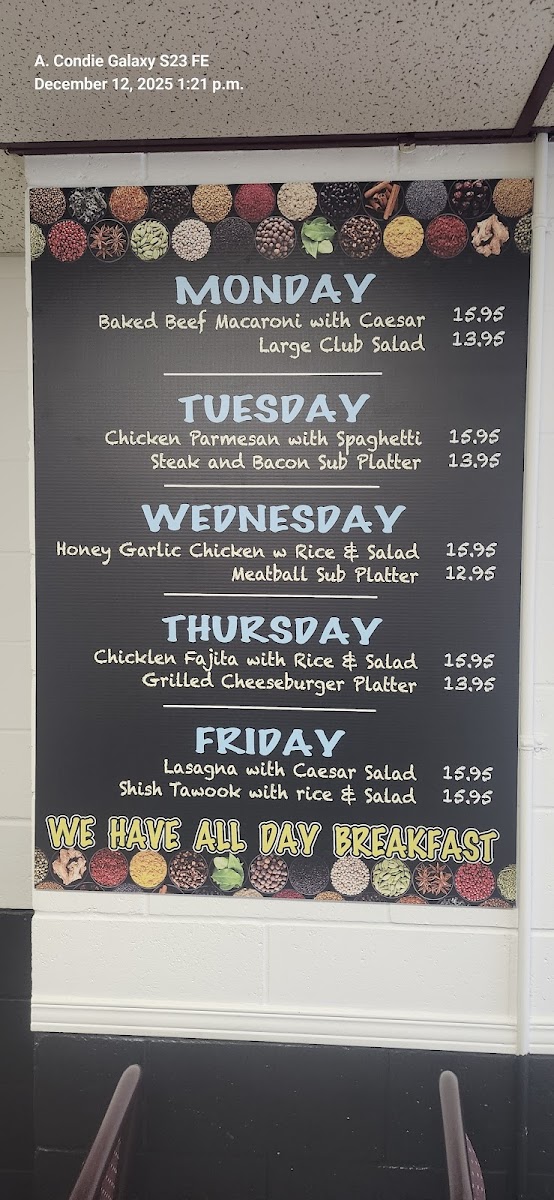 A. Condie Galaxy S23 FE
December 12, 2025 1:21 p.m.
MONDAY
Baked Beef Macaroni with Caesar 15.95
Large Club Salad 13.95
TUESDAY
Chicken Parmesan with Spaghetti 15.95
Steak and Bacon Sub Platter 13.95
WEDNESDAY
Honey Garlic Chicken w Rice & Salad 15.95
Meatball Sub Platter 12.95
THURSDAY
Chicklen Fajita with Rice & Salad 15.95
Grilled Cheeseburger Platter 13.95
FRIDAY
Lasagna with Caesar Salad 15.95
Shish Tawook with rice & Salad 15.95
WE HAVE ALL DAY BREAKFAST